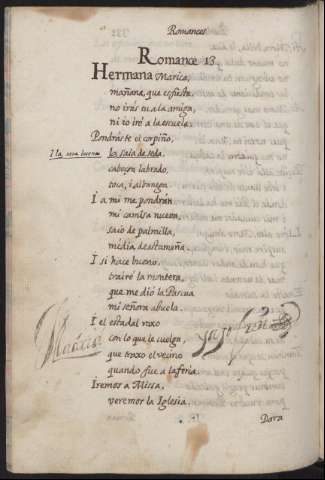 Romances
Romance 13.
Hermana Marica,
mañana, que es fiesta,
no irás tu a la amiga,
ni io iré a la escuela.
Pondráste el corpiño,
I la saia buena
cabeçon labrado,
toca, i albanega.
I a mi me pondràn
mi camisa nueva,
saio de palmilla,
media de estameña.
I si hace bueno,
trairé la montera,
que me diò la Pascua
mi señora abuela.
I el estadal roxo
con lo que le cuelga,
que truxo el vecino
quando fue a la feria.
Iremos a Missa,
veremor la Iglesia,
Dara